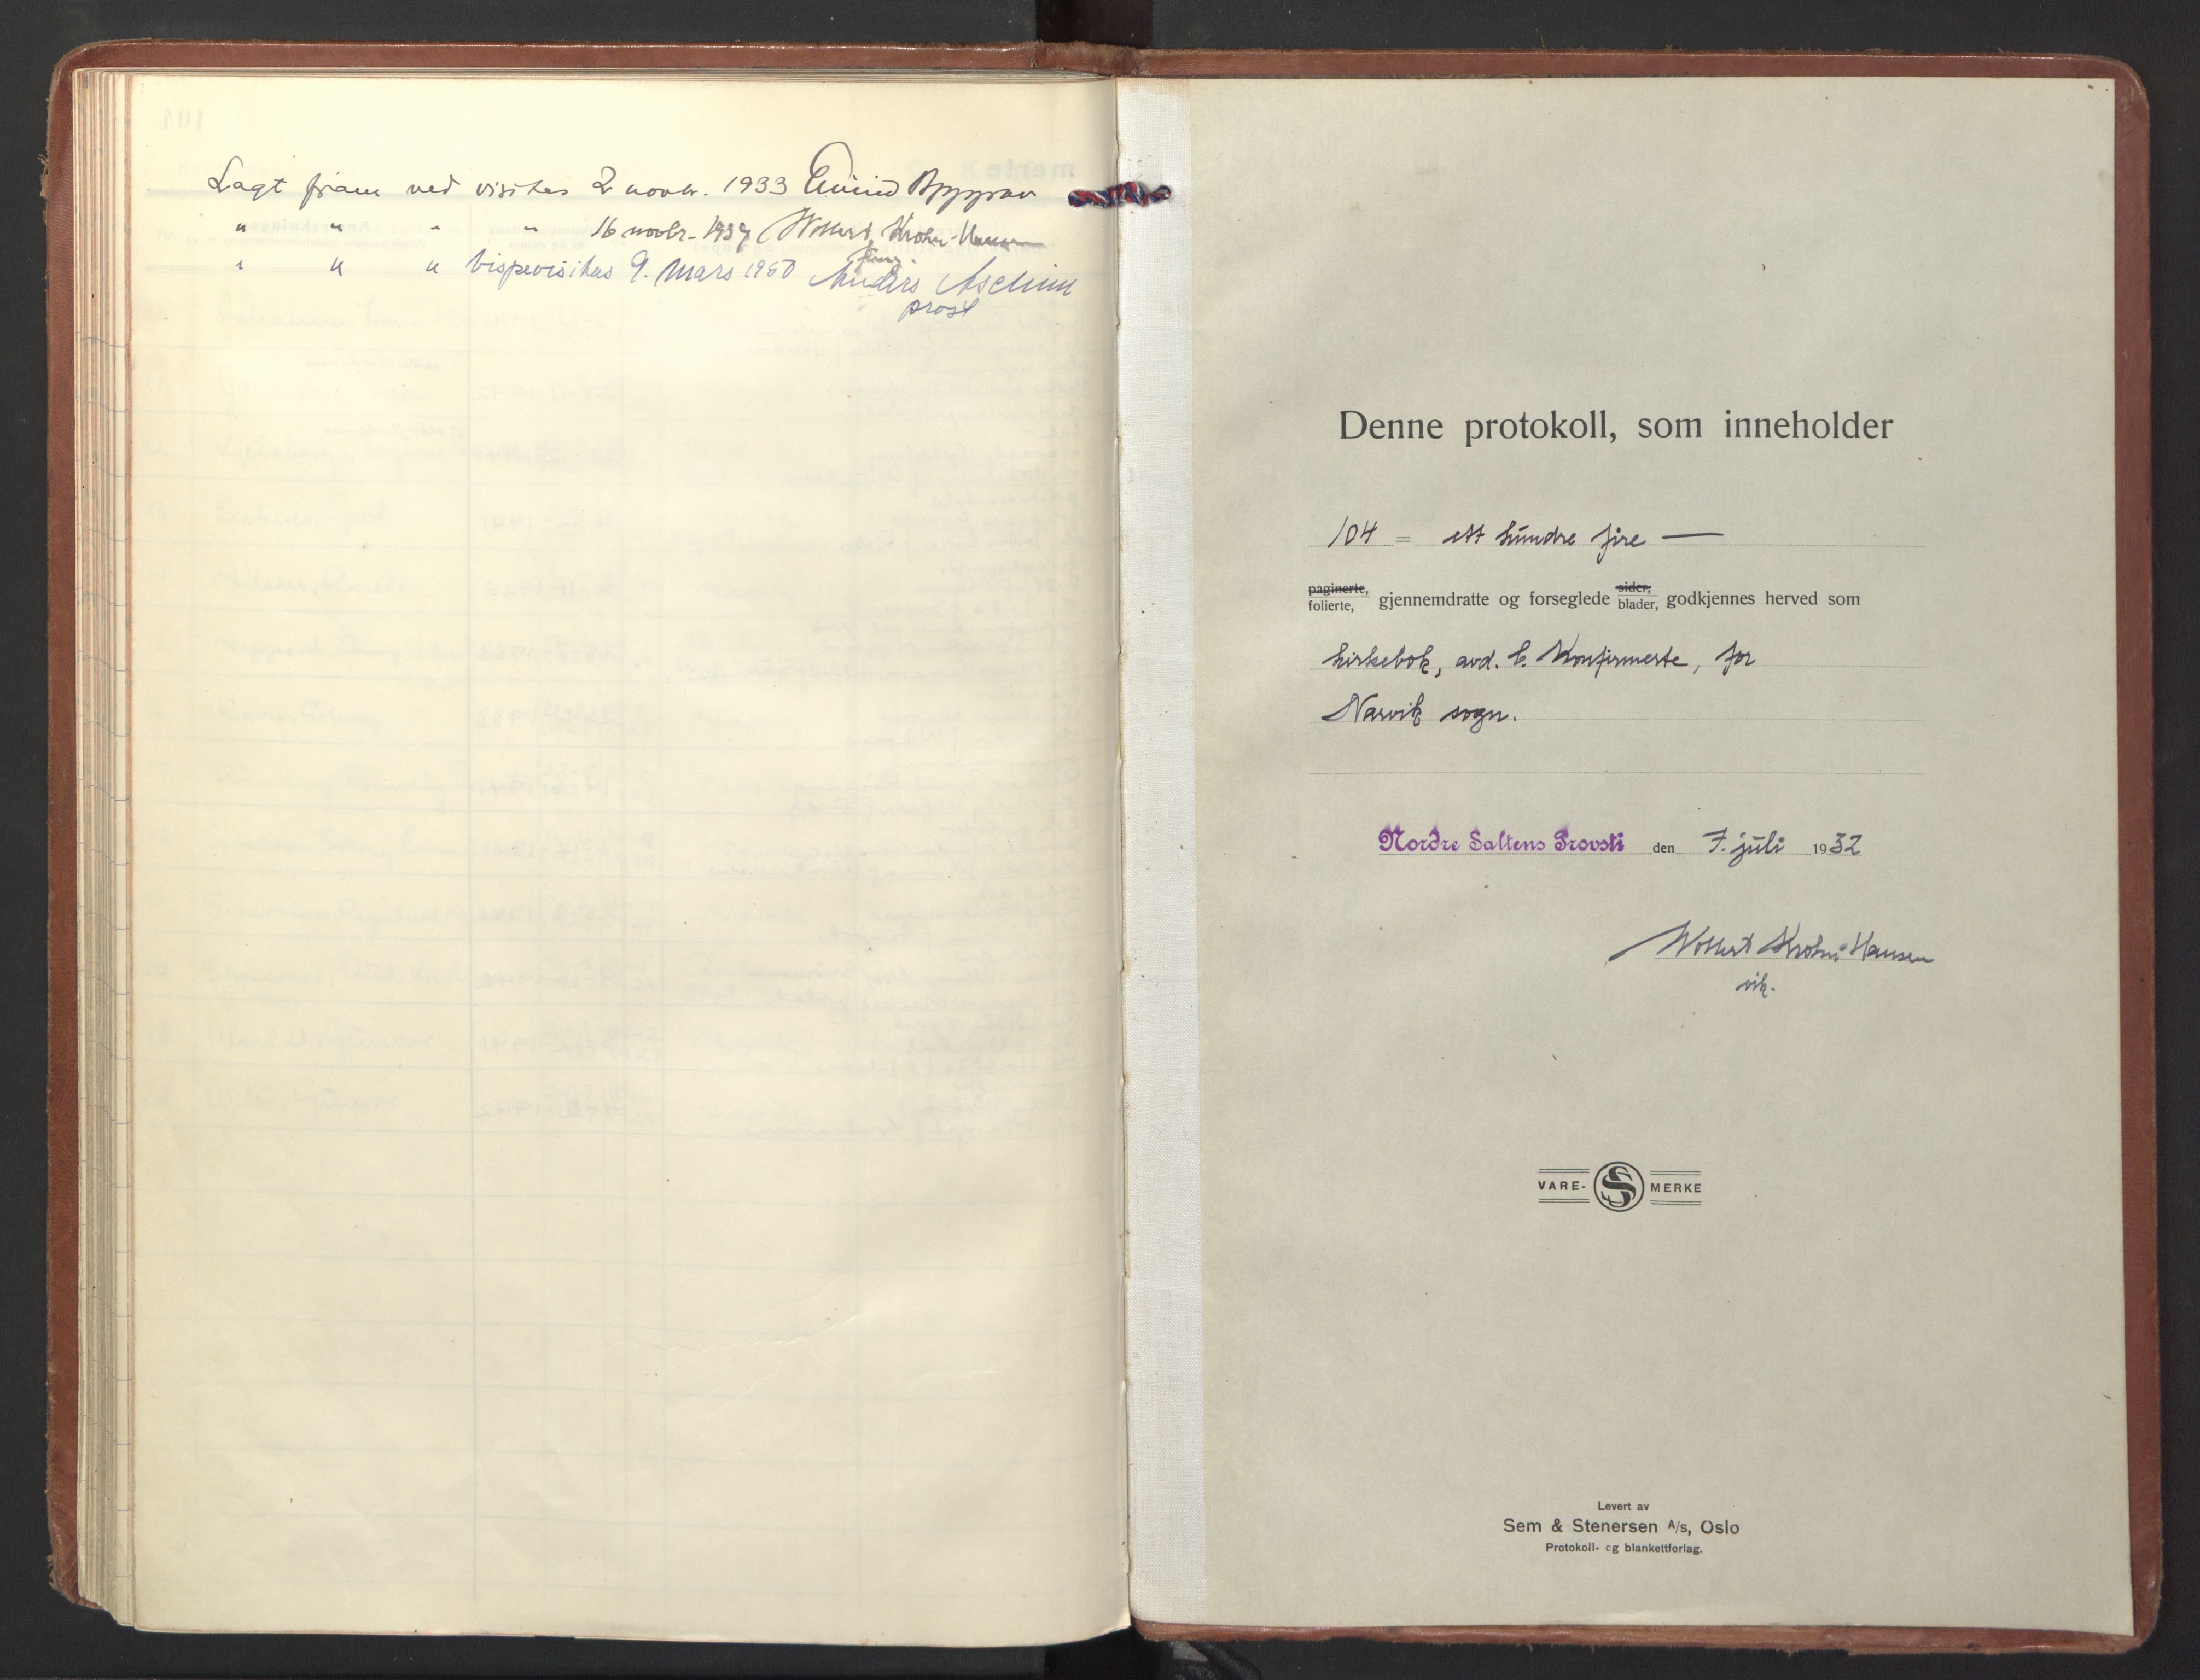 Lagt fram ved visitas 2 novbr. 1933 Eivind Berggrav
" " " " 16 novbr. 1937 Wollert Krohn-Hansen
fung.
" " " bispevisitas 9. mars 1950 Anders Aschim
prost
Denne protokoll, som inneholder
104 = ett hundre fire —
paginerte,
folierte, gjennemdratte og forseglede sider, blader, godkjennes herved som
kirkebok, avd. C. Konfirmerte, for
Narvik sogn.
Nordre Saltens Provsti den 7. juli 1932
Wollert Krohn-Hansen
vik.
VARE- S MERKE
Levert av
Sem & Stenersen A/s, Oslo
Protokoll- og blankettforlag.